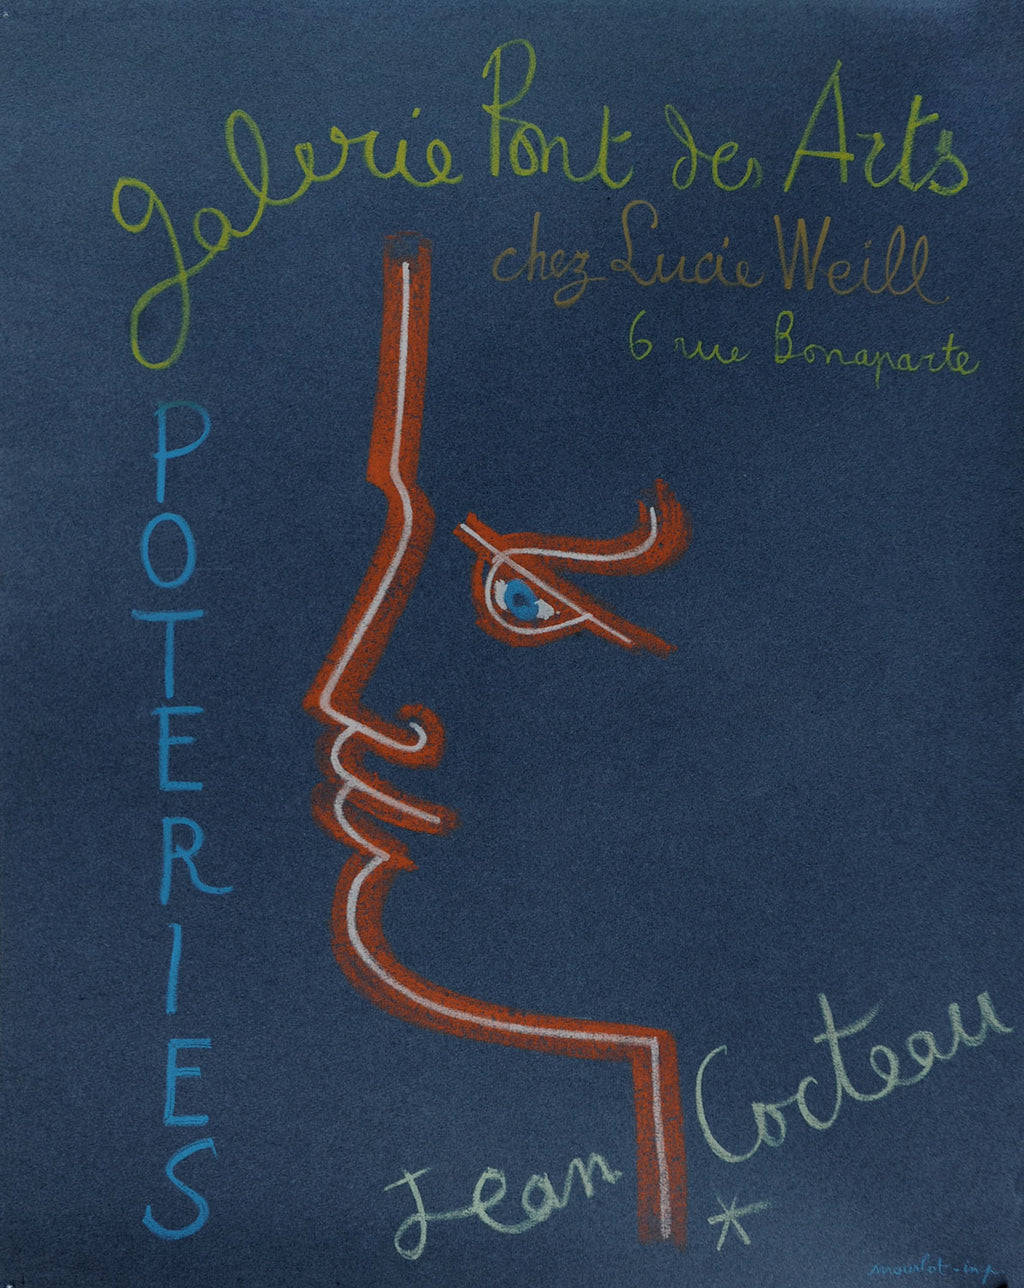 Galerie Pont des Arts
chez Lucie Weill
6 rue Bonaparte
POTERIES
Jean Cocteau
mourlot-imp.